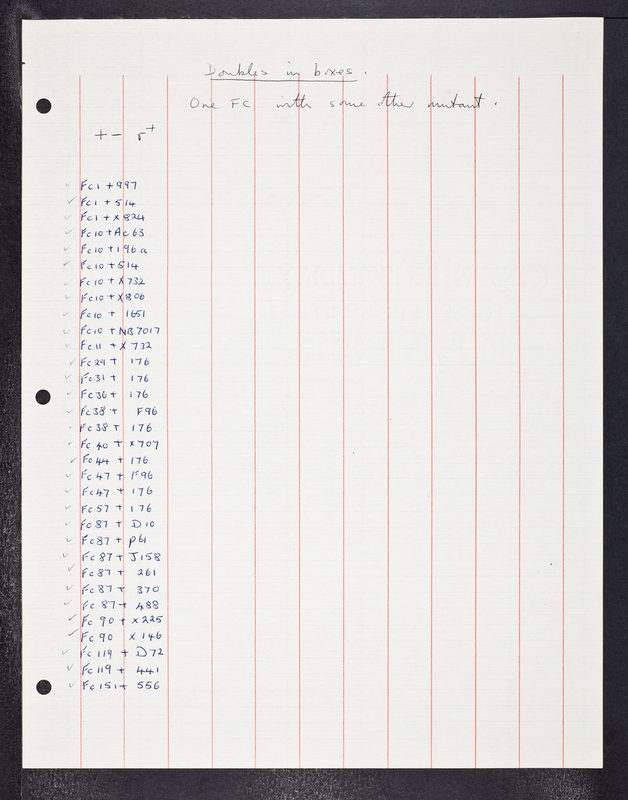 Doubles in boxes.
One FC with some other mutant.
+ - r+
✓ FC1 + 997
✓ FC1 + 514
✓ FC1 + X824
✓ FC10 + AC63
✓ FC10 + 196a
✓ FC10 + 514
✓ FC10 + X732
✓ FC10 + X806
✓ FC10 + 1651
✓ FC10 + NB7017
✓ FC11 + X732
✓ FC29 + 176
✓ FC31 + 176
✓ FC36 + 176
✓ FC38 + F96
✓ FC38 + 176
✓ FC40 + X707
✓ FC44 + 176
✓ FC47 + F96
✓ FC47 + 176
✓ FC57 + 176
✓ FC87 + D10
✓ FC87 + P61
✓ FC87 + J158
✓ FC87 + 261
✓ FC87 + 370
✓ FC87 + 488
✓ FC90 + X225
✓ FC90 X146
✓ FC119 + D72
✓ FC119 + 441
✓ FC151 + 556